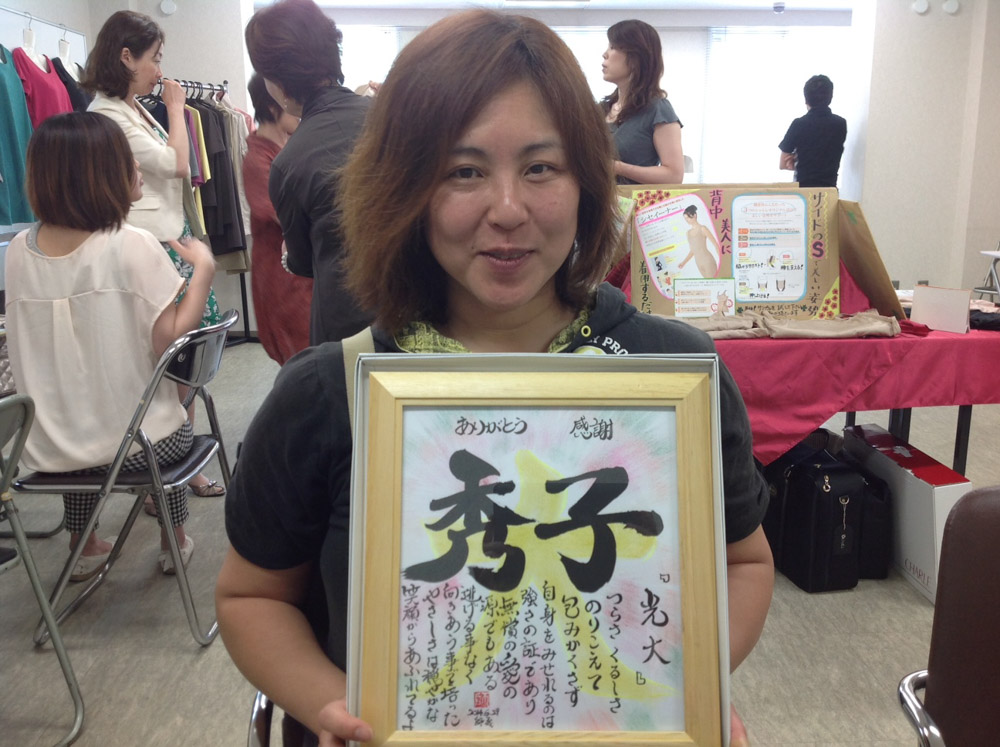 ありがとう 感謝
秀子
『光大』
つらさくるしさ
のりこえて
包みかくさず
自身をみせれるのは
強さの証であり
無償の愛の
源でもある
逃げる事なく
向きあう事で培った
やさしさは穏やかな
笑顔からあふれてるよ
背中美人に
サイドのSで美しい姿
着用するだ
PRO
CHARLE